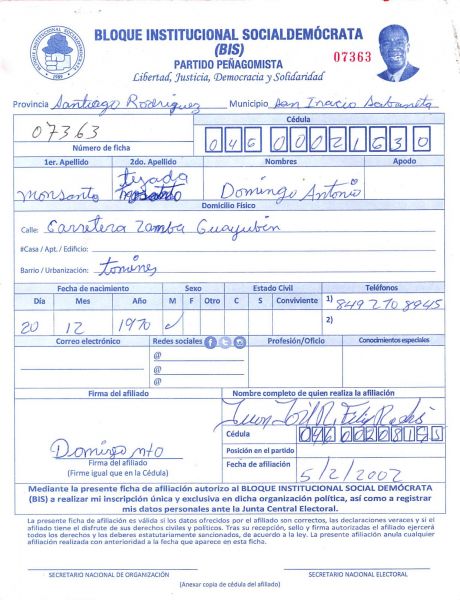 BLOQUE INSTITUCIONAL SOCIALDEMÓCRATA
(BIS)
PARTIDO PEÑAGOMISTA
07363
Libertad, Justicia, Democracia y Solidaridad
Provincia Santiago Rodriguez Municipio San Inacio Sabaneta
07363
Número de ficha
Cédula
04600021630
1er. Apellido 2do. Apellido Nombres Apodo
Monsanto tejada Domingo Antonio
Domicilio Físico
Calle: Carretera Zamba Guayubin
#Casa / Apt. / Edificio:
Barrio / Urbanización: tomines
Fecha de nacimiento Sexo Estado Civil Teléfonos
Día Mes Año M F Otro C S Conviviente 1) 849 270 8945
20 12 1970 ✓ 2)
Correo electrónico Redes sociales Profesión/Oficio Conocimientos especiales
@
@
@
Firma del afiliado Nombre completo de quien realiza la afiliación
Cédula
Domingo mto Posición en el partido
Firma del afiliado
(Firme igual que en la Cédula)
Fecha de afiliación 5/2/2002
Mediante la presente ficha de afiliación autorizo al BLOQUE INSTITUCIONAL SOCIAL DEMÓCRATA
(BIS) a realizar mi inscripción única y exclusiva en dicha organización política, así como a registrar
mis datos personales ante la Junta Central Electoral.
La presente ficha de afiliación es válida si los datos ofrecidos por el afiliado son correctos, las declaraciones veraces y si el
afiliado tiene el disfrute de sus derechos civiles y políticos. Tras su recepción, sello y firma autorizadas el afiliado ejercerá
todos los derechos y los deberes estatutariamente sancionados, de acuerdo a la ley. La presente afiliación anula cualquier
afiliación realizada con anterioridad a la fecha que aparece en esta ficha.
SECRETARIO NACIONAL DE ORGANIZACIÓN SECRETARIO NACIONAL ELECTORAL
(Anexar copia de cédula del afiliado)